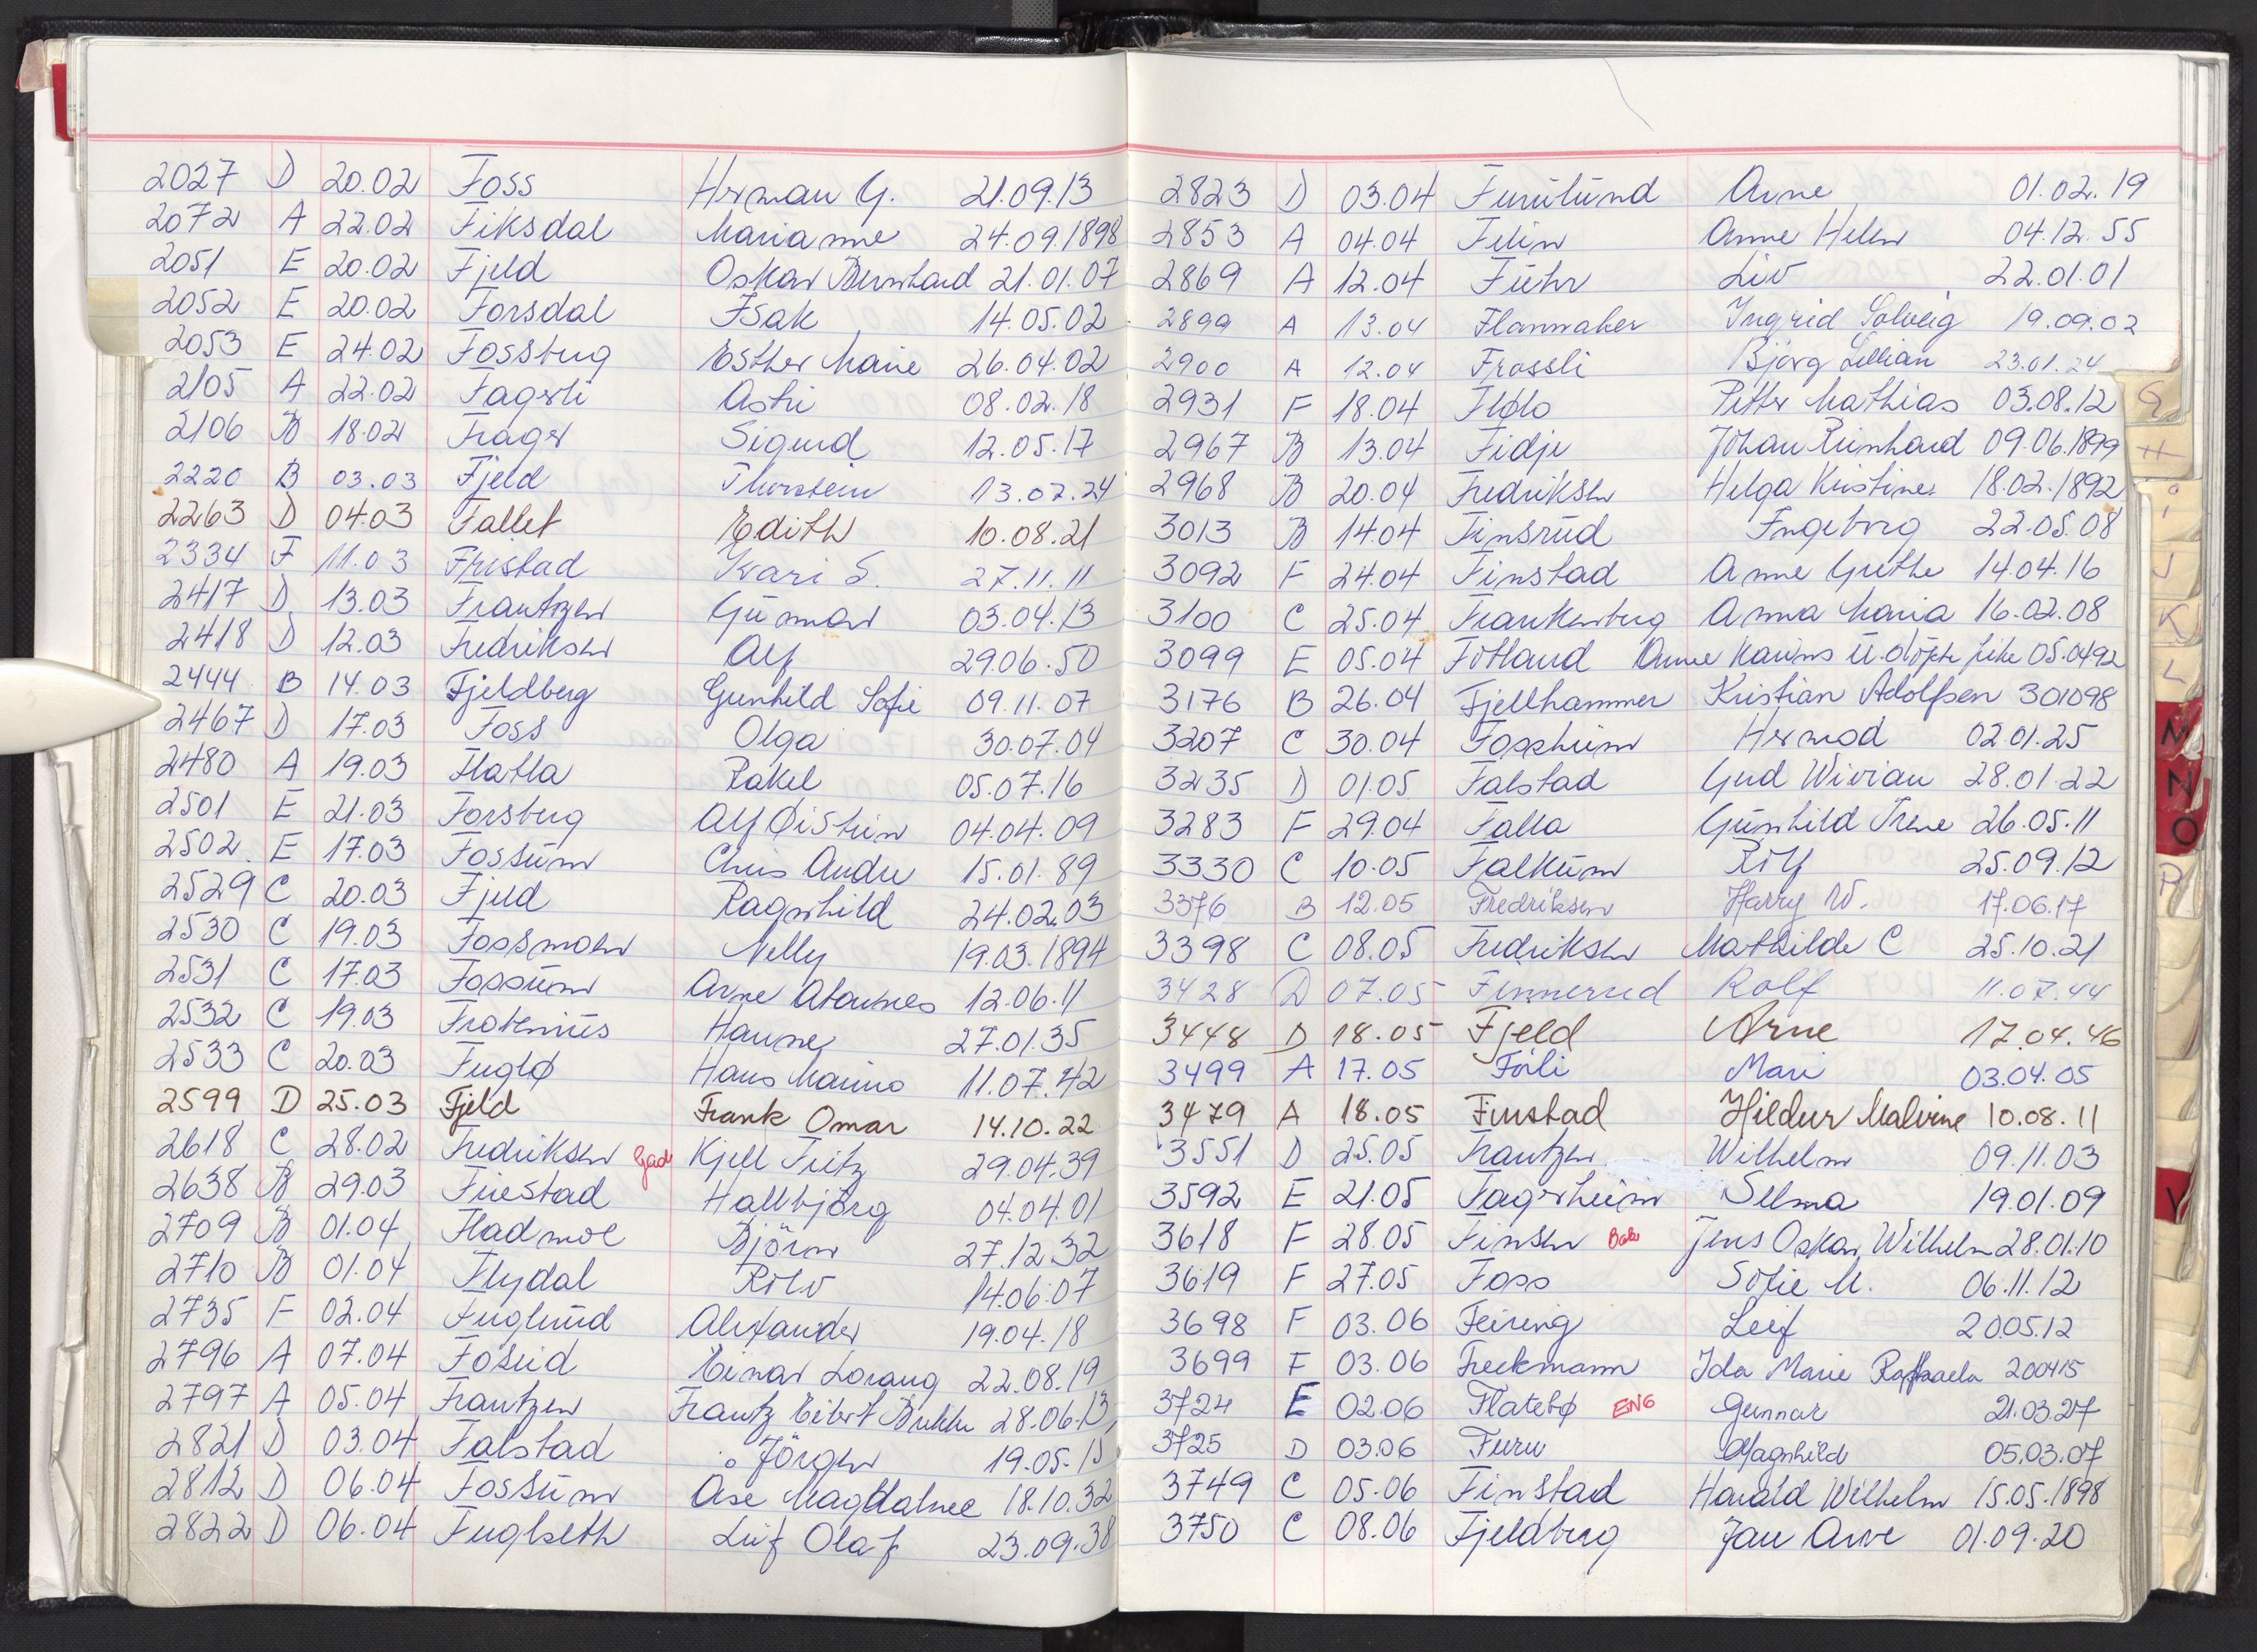 2027 D 20.02 Foss Herman G. 21.09.13
2072 A 22.02 Fiksdal Marianne 24.09.1898
2051 E 20.02 Fjeld Oskar Bernhard 21.01.07
2052 E 20.02 Forsdal Isak 14.05.02
2053 E 24.02 Fossberg Esther Marie 26.04.02
2105 A 22.02 Fagerli Astri 08.02.18
2106 B 18.02 Frager Sigurd 12.05.17
2220 B 03.03 Fjeld Thorstein 13.07.24
2263 D 04.03 Fallet Edith 10.08.21
2334 F 11.03 Fristad Kari S. 27.11.11
2417 D 13.03 Frantzen Gunnar 03.04.13
2418 D 12.03 Fredriksen Alf 29.06.50
2444 B 14.03 Fjeldberg Gunhild Sofie 09.11.07
2467 D 17.03 Foss Olga 30.07.04
2480 A 19.03 Flatla Rakel 05.07.16
2501 E 21.03 Forsberg Alf Øistein 04.04.09
2502 E 17.03 Fossum Chris Andre 15.01.89
2529 C 20.03 Fjeld Ragnhild 24.02.03
2530 C 19.03 Fossmoen Nelly 19.03.1894
2531 C 17.03 Fossum Arne 12.06.11
2532 C 19.03 Hanne 27.01.35
2533 C 20.03 Fuglø Hans Marino 11.07.42
2599 D 25.03 Fjeld Frank Omar 14.10.22
2618 C 28.02 Fredriksen Gade Kjell Fritz 29.04.39
2638 B 29.03 Friestad Hallbjörg 04.04.01
2709 B 01.04 Fladmoe Björn 27.12.32
2710 B 01.04 Flydal Rolv 14.06.07
2735 F 02.04 Fuglerud Alexander 19.04.18
2796 A 07.04 Foseid Einar Lorang 22.08.19
2797 A 05.04 Frantzen Frantz Eibert 28.06.13
2821 D 03.04 Falstad Jörgen 19.05.15
2812 D 06.04 Fossum Åse Magdalene 18.10.32
2822 D 06.04 Fuglseth Leif Olaf 23.09.38
2823 D 03.04 Furulund Arne 01.02.19
2853 A 04.04 Felin Anne Helen 04.12.55
2869 A 12.04 Führ Liv 22.01.01
2899 A 13.04 Flannaker Ingrid Solveig 19.09.02
2900 A 12.04 Frossli Bjørg Lillian 23.01.24
2931 F 18.04 Flølo Petter Mathias 03.08.12
2967 B 13.04 Fidje Johan Reinhard 09.06.1899
2968 B 20.04 Fredriksen Helga Kristine 18.02.1892
3013 B 14.04 Finsrud Ingeborg 22.05.08
3092 F 24.04 Finstad Anne Grethe 14.04.16
3100 C 25.04 Frankenberg Anna Maria 16.02.08
3099 E 05.04 Fotland Anne Karins u.døpte pike 05.0492
3176 B 26.04 Fjellhammer Kristian Adolfsen 301098
3207 C 30.04 Fossheim Hermod 02.01.25
3235 D 01.05 Falstad Gud Wivian 28.01.22
3283 F 29.04 Falla Gunhild Irene 26.05.11
3330 C 10.05 Falkum Rolf 25.09.12
3376 B 12.05 Fredriksen Harry W. 17.06.17
3398 C 08.05 Fredriksen Mathilde C 25.10.21
3428 D 07.05 Finnerud Rolf 11.07.44
3448 D 18.05 Fjeld Arne 17.04.46
3499 A 17.05 Förli Mari 03.04.05
3479 A 18.05 Finstad Hildur Malvine 10.08.11
3551 D 25.05 Frantzen Wilhelm 09.11.03
3592 E 21.05 Fagerheim Selma 19.01.09
3618 F 28.05 Finsen Jens Oskar Wilhelm 28.01.10
3619 F 27.05 Foss Sofie M. 06.11.12
3698 F 03.06 Feiring Leif 20.05.12
3699 F 03.06 Freckmann Ida Marie Raffaela 200415
3724 E 02.06 Flatebø ENG Gunnar 21.03.27
3725 D 03.06 Furu Magnhild 05.03.07
3749 C 05.06 Finstad Harald Wilhelm 15.05.1898
3750 C 08.06 Fjeldberg Jan Arve 01.09.20
G
H
I
J
K
L
M
N
O
P
V